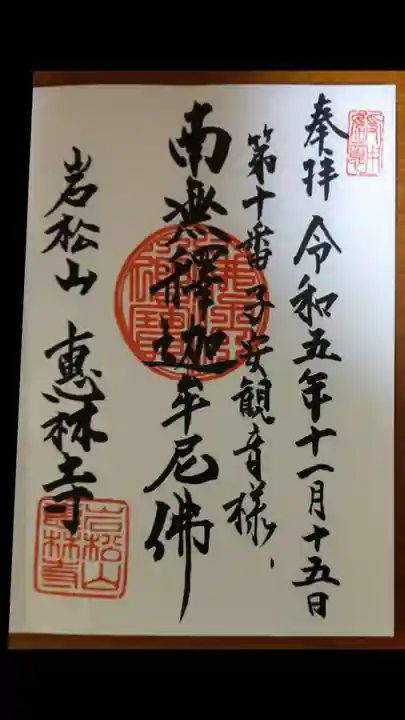 奉拝 令和五年十一月十五日
第十番子安観音様、
南無釋迦牟尼佛
岩松山 恵林寺
岩松山恵林寺